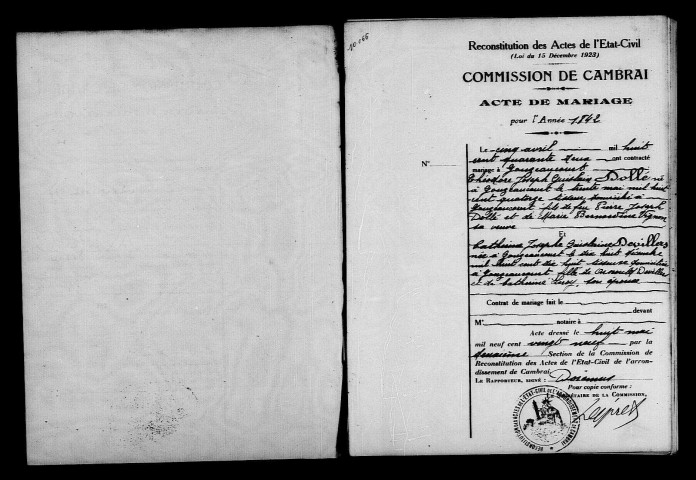 Reconstitution des Actes de l'Etat-Civil
(Loi du 15 Décembre 1923)
COMMISSION DE CAMBRAI
ACTE DE MARIAGE
pour l'Année 1842
Le cinq avril mil huit
N° cent quarante deux ont contracté
mariage à Gouzeaucourt
Théodore Joseph Guislain Dollé né
à Gouzeaucourt le trente mai mil huit
cent quatorze tisseur domicilié à
Gouzeaucourt fils de feu Pierre Joseph
Dollé et de Marie Bernardine
sa veuve
Et
Catherine Josephe Guislaine Devillers
née à Gouzeaucourt le dix huit
mil huit cent dix huit tisseuse domiciliée
à Gouzeaucourt fille de Devillers
et de Catherine son épouse
Contrat de mariage fait le
devant
M° notaire à
Acte dressé le huit mai
mil neuf cent vingt neuf par la
Section de la Commission de
Reconstitution des Actes de l'Etat-Civil de l'arron-
dissement de Cambrai.
LE RAPPORTEUR, SIGNÉ :
Pour copie conforme :
LE SECRÉTAIRE DE LA COMMISSION,